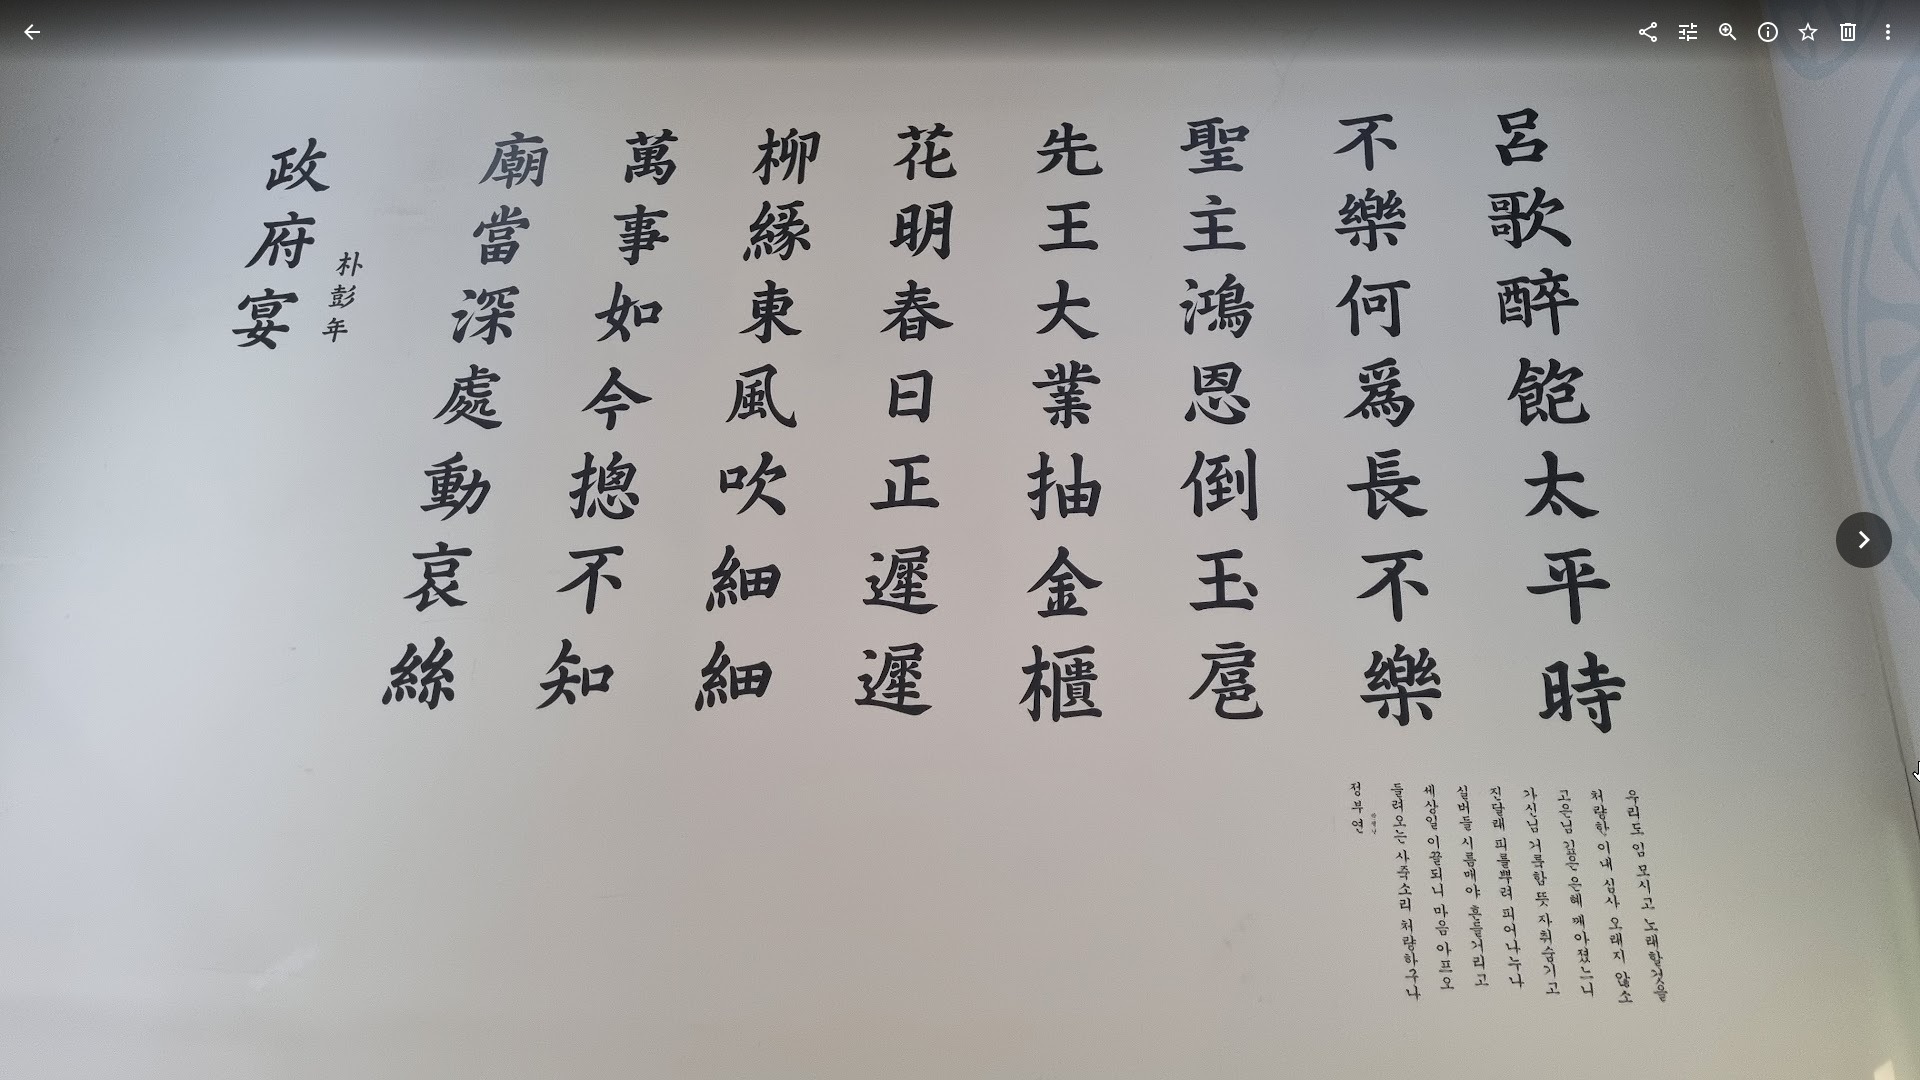 呂歌醉飽太平時
不樂何爲長不樂
聖主鴻恩倒玉扈
先王大業抽金櫃
花明春日正遲遲
柳緣東風吹細細
萬事如今摠不知
廟當深處動哀絲
朴彭年
政府宴
우리도 임 모시고 노래할것을
처량한 이내 심사 오래지 않소
고은님 깊은 은혜 깨아졌느니
가신님 거룩함 뜻 자취숨기고
진달래 피를뿌려 피어나누나
실버들 시름매야 흔들거리고
세상일 이꼴되니 마음 아프오
들려오는 사죽소리 처량하구나
정부연